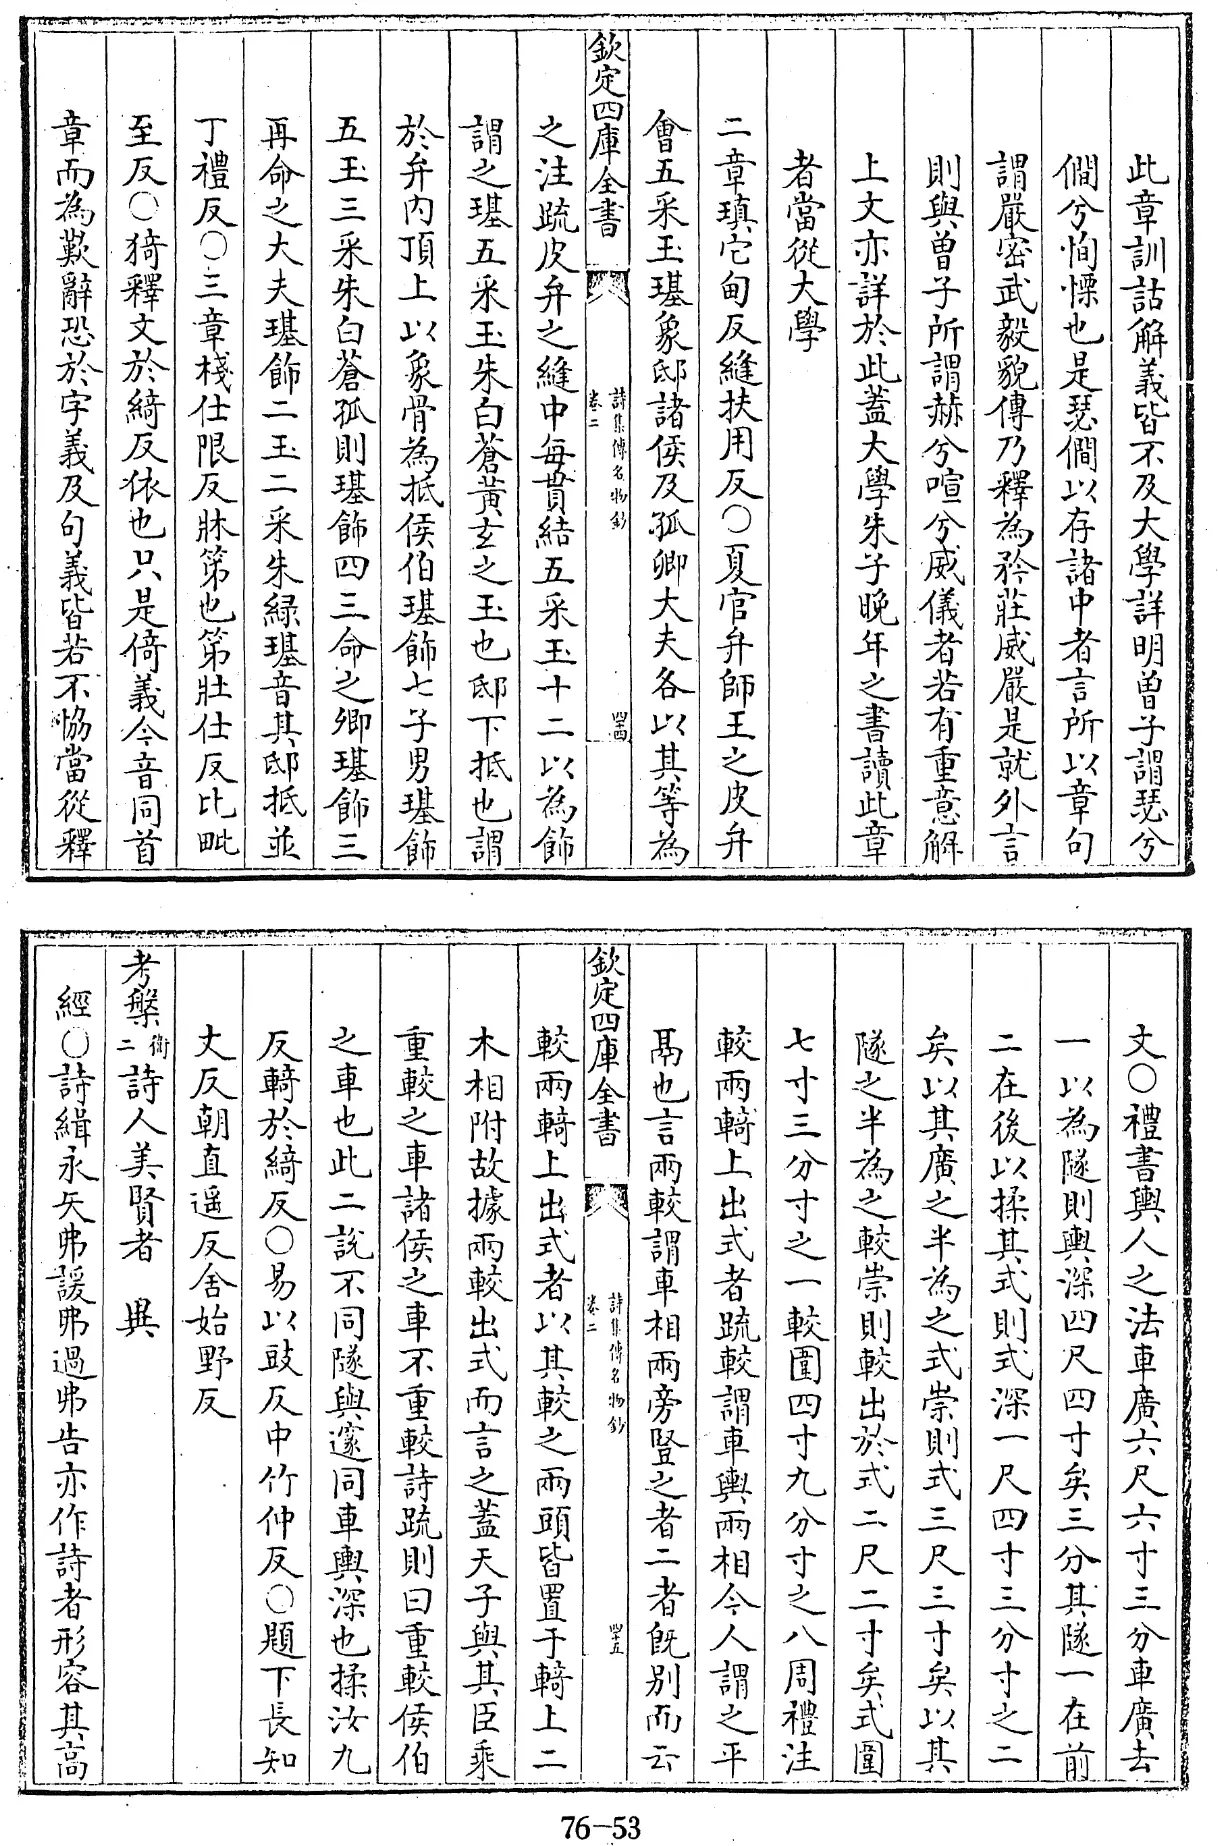 此章訓詁解義皆不及大學詳明曽子謂瑟兮
僴兮恂慄也是瑟僴以存諸中者言所以章句
謂嚴密武毅貌傳乃釋為矜莊威嚴是就外言
則與曽子所謂赫兮喧兮威儀者若有重意解
上文亦詳於此蓋大學朱子晚年之書讀此章
者當從大學
二章瑱它甸反縫扶用反○夏官弁師王之皮弁
㑹五采玉璂象邸諸侯及孤卿大夫各以其等為
欽定四庫全書
詩集傳名物鈔
卷二
四十四
之注疏皮弁之縫中每貫結五采玉十二以為飾
謂之璂五采玉朱白蒼黃玄之玉也邸下抵也謂
於弁内頂上以象骨為抵侯伯璂飾七子男璂飾
五玉三采朱白蒼孤則璂飾四三命之卿璂飾三
再命之大夫璂飾二玉二采朱緑璂音其邸抵並
丁禮反○三章棧仕限反牀第也第壯仕反比毗
至反○猗釋文於綺反依也只是倚義今音同首
章而為歎辭恐於字義及句義皆若不恊當從釋
文○禮書輿人之法車廣六尺六寸三分車廣去
一以為隧則輿深四尺四寸矣三分其隧一在前
二在後以揉其式則式深一尺四寸三分寸之二
矣以其廣之半為之式崇則式三尺三寸矣以其
隧之半為之較崇則較出於式二尺二寸矣式圍
七寸三分寸之一較圍四寸九分寸之八周禮注
較兩輢上出式者疏較謂車輿兩相今人謂之平
鬲也言兩較謂車相兩旁豎之者二者旣別而云
欽定四庫全書
詩集傳名物鈔
卷二
四十五
較兩輢上出式者以其較之兩頭皆置于輢上二
木相附故據兩較出式而言之蓋天子與其臣乘
重較之車諸侯之車不重較詩疏則曰重較侯伯
之車也此二說不同隧與邃同車輿深也揉汝九
反輢於綺反○易以豉反中竹仲反○題下長知
丈反朝直遥反舍始野反
考槃衛二詩人美賢者　與
經○詩緝永矢弗諼弗過弗告亦作詩者形容其高
76-53